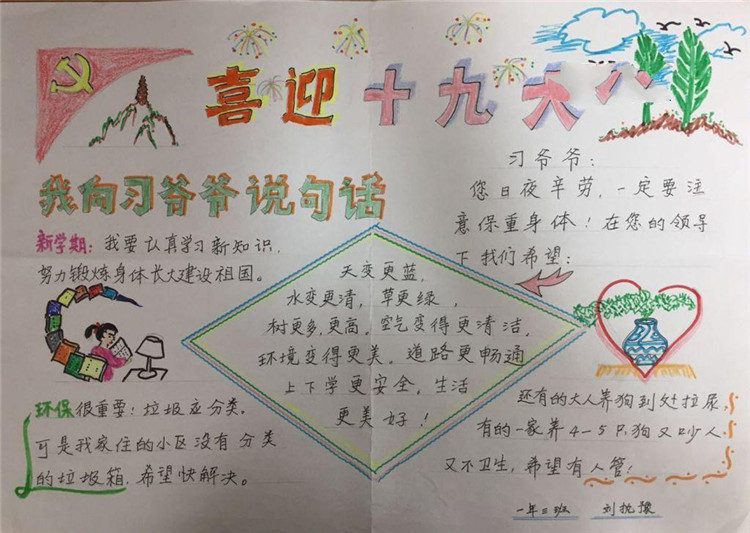 喜迎十九大
我向习爷爷说句话
新学期：我要认真学习新知识，
努力锻炼身体长大建设祖国。
环保很重要：垃圾应分类。
可是我家住的小区没有分类
的垃圾箱，希望快解决。
习爷爷：
您日夜辛劳，一定要注
意保重身体！在您的领导
下我们希望：
天变更蓝，
水变更清，草更绿，
树更多，更高。空气变得更清洁，
环境变得更美。道路更畅通
上下学更安全，生活
更美好！
还有的大人养狗到处拉尿，
有的一家养4-5只狗又吵人
又不卫生，希望有人管！
一年三班 刘